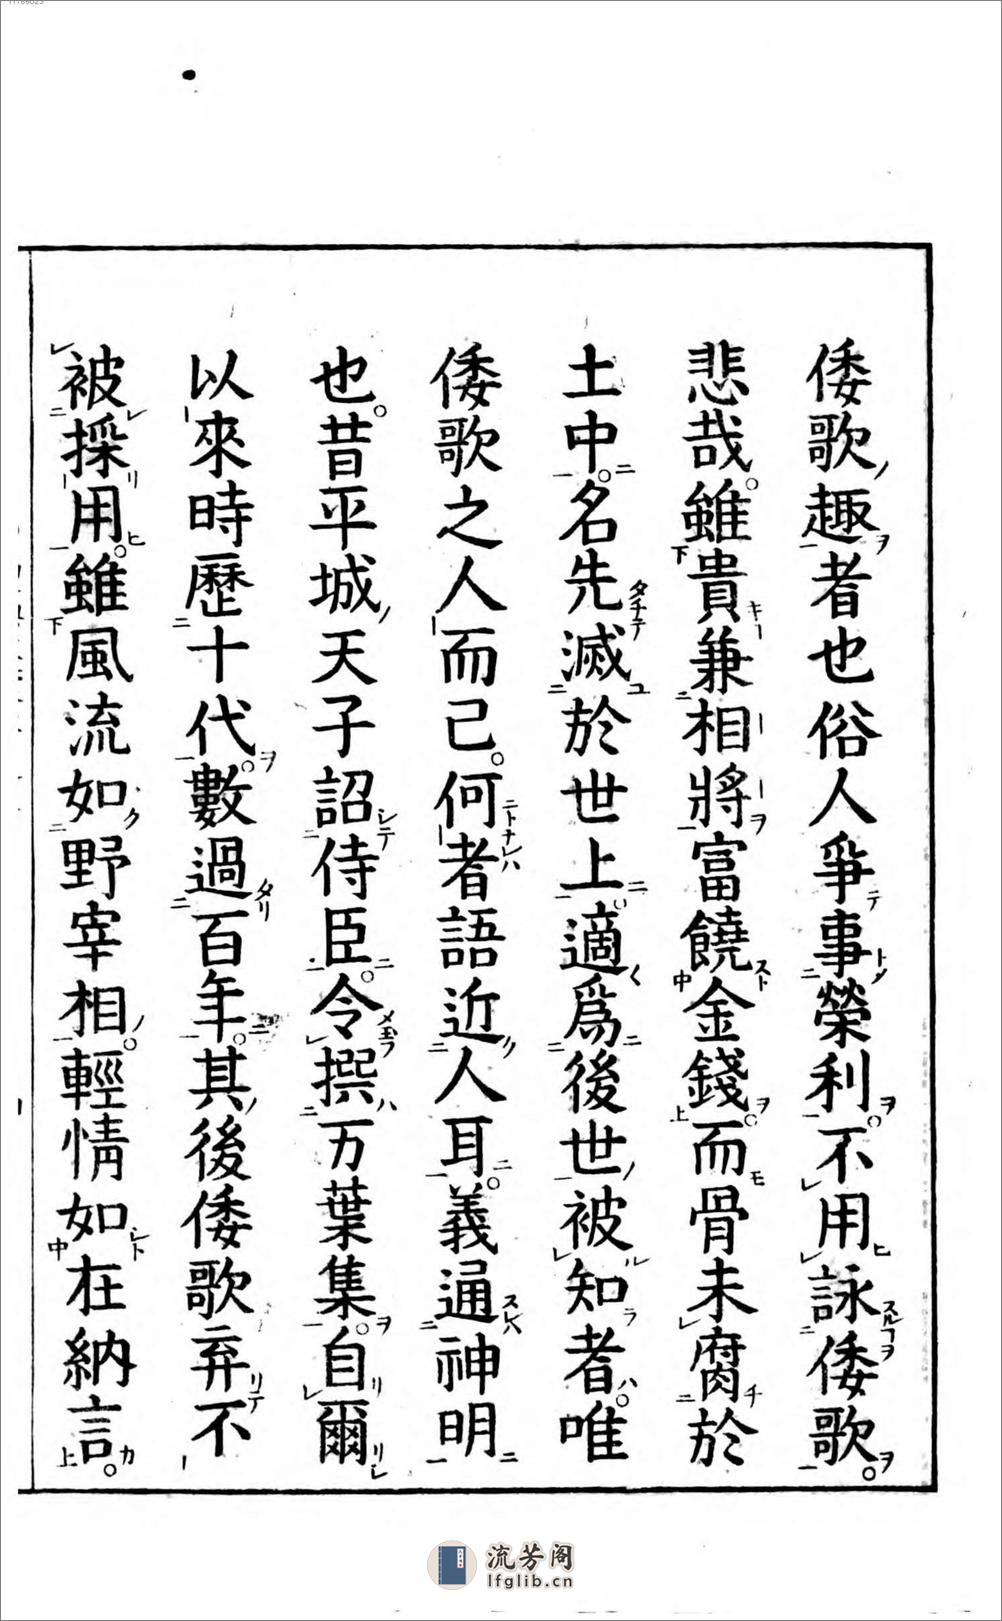 倭歌趣者也俗人爭事榮利。不用詠倭歌。
悲哉。雖貴兼相將富饒金錢。而骨未腐於
土中。名先滅於世上。適爲後世被知者。唯
倭歌之人而已。何者語近人耳。義通神明
也。昔平城天子詔侍臣。令撰万葉集。自爾
以來時歷十代。數過百年。其後倭歌弃不
被採用。雖風流如野宰相。輕情如在納言。
流芳阁
lfglib.cn